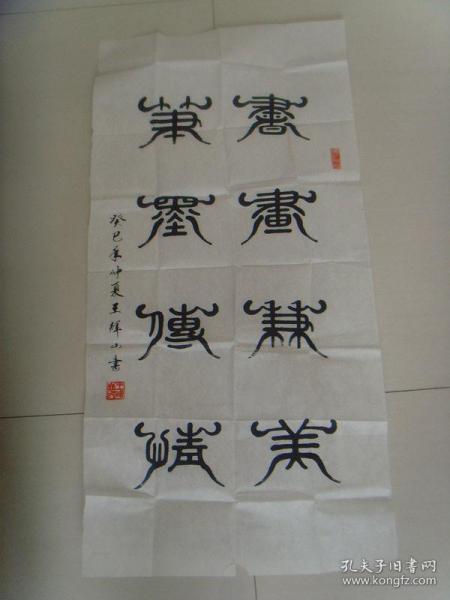 書畫兼美
筆墨傳情
癸巳年仲夏王輝山書
孔夫子旧书网
www.kongfz.com